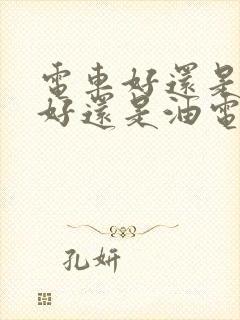 電車好還是
好還是油電
孔妍